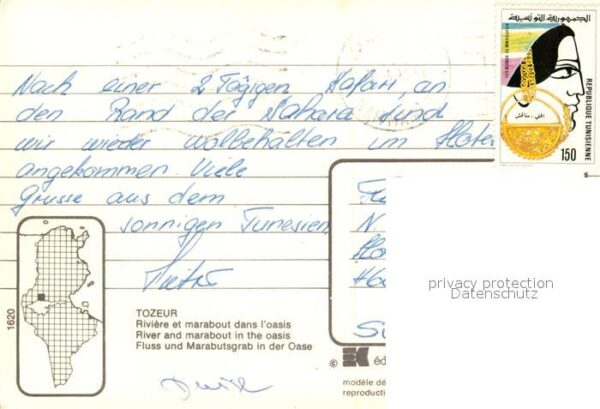 الجمهورية التونسية
REPUBLIQUE TUNISIENNE
150
Nach einer 2 Tägigen Safari, an
den Rand der Sahara sind
wir wieder wolbehalten im Hotel
angekommen. Viele
Grüsse aus dem
sonnigen Tunesien
privacy protection
Datenschutz
1620
TOZEUR
Rivière et marabout dans l'oasis
River and marabout in the oasis
Fluss und Marabutsgrab in der Oase
©
éd
modèle dé
reproductio